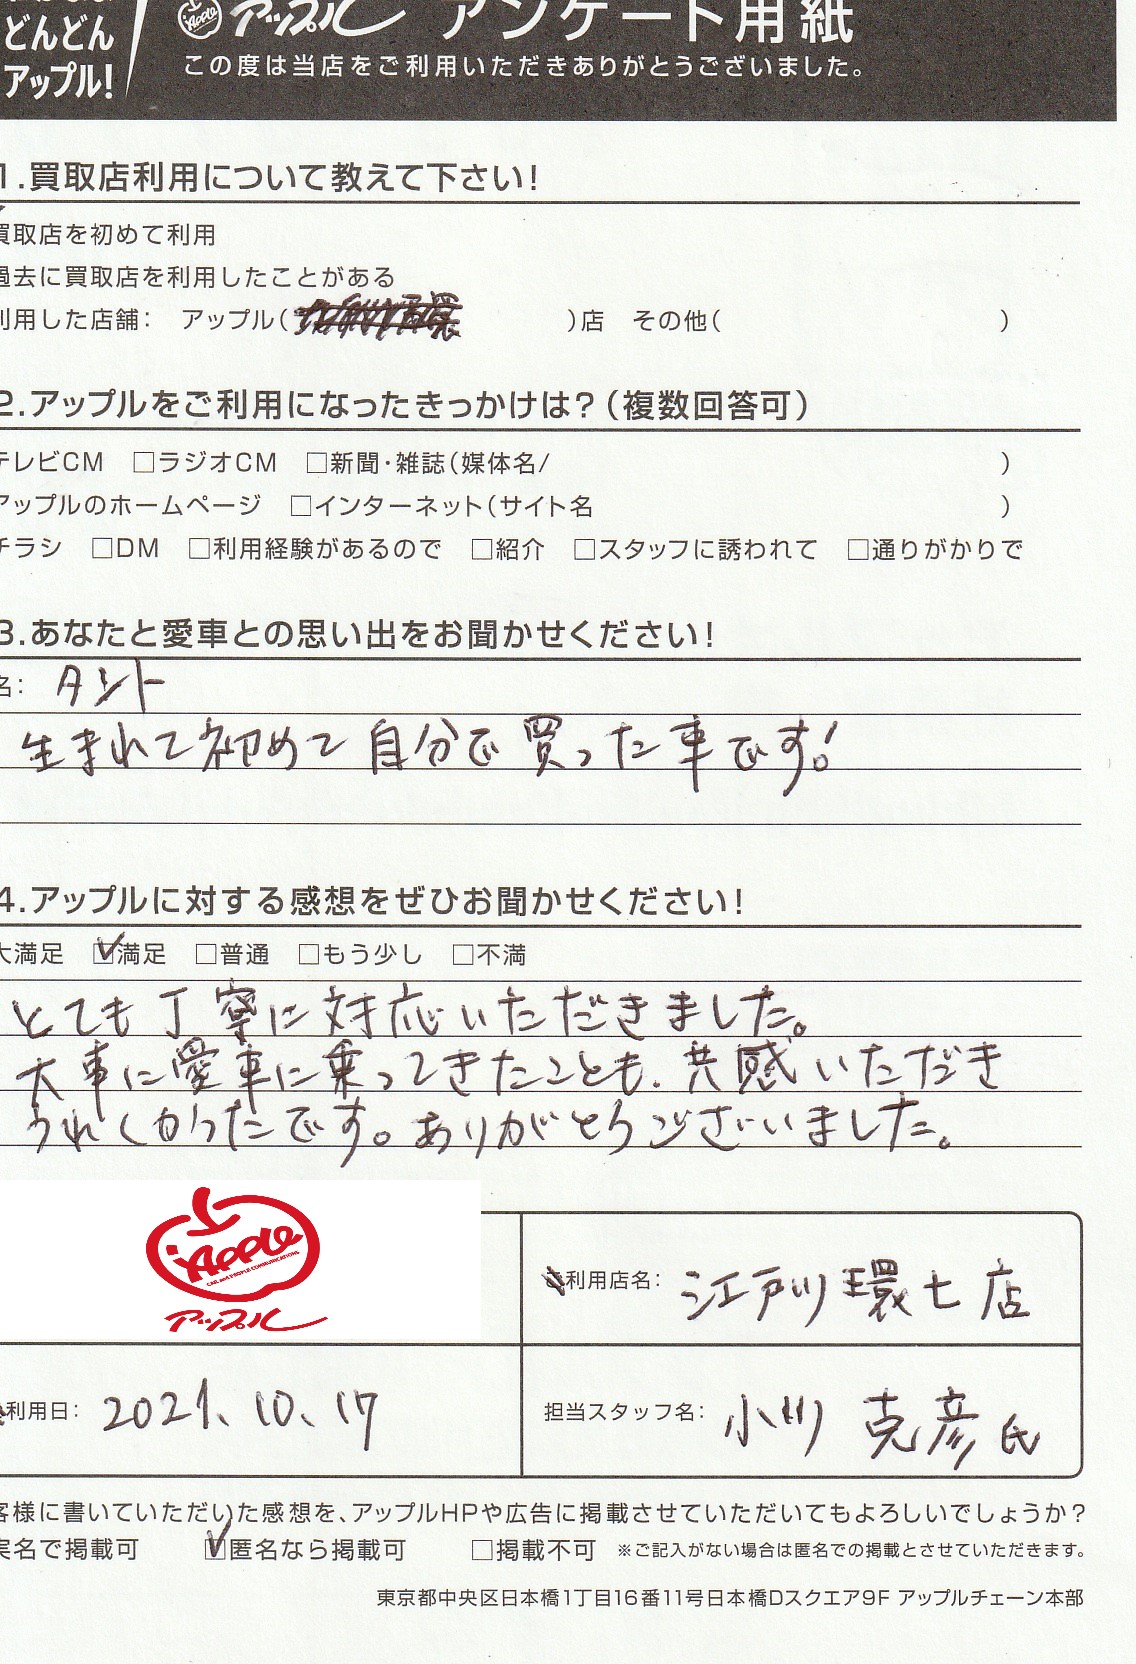 どんどん
アップル!
Apple アップル アンケート用紙
この度は当店をご利用いただきありがとうございました。
1.買取店利用について教えて下さい!
買取店を初めて利用
過去に買取店を利用したことがある
利用した店舗: アップル( )店 その他( )
2.アップルをご利用になったきっかけは?(複数回答可)
テレビCM □ラジオCM □新聞・雑誌(媒体名/ )
アップルのホームページ □インターネット(サイト名 )
チラシ □DM □利用経験があるので □紹介 □スタッフに誘われて □通りがかりで
3.あなたと愛車との思い出をお聞かせください!
名: タント
生まれて初めて自分で買った車です!
4.アップルに対する感想をぜひお聞かせください!
大満足 ☑満足 □普通 □もう少し □不満
とても丁寧に対応いただきました。
大事に愛車に乗ってきたことも、共感いただき
うれしかったです。ありがとうございました。
Apple
CAR and PEOPLE COMMUNICATIONS
アップル
利用店名: 江戸川環七店
利用日: 2021.10.17
担当スタッフ名: 小川 克彦氏
客様に書いていただいた感想を、アップルHPや広告に掲載させていただいてもよろしいでしょうか?
実名で掲載可 ☑匿名なら掲載可 □掲載不可 ※ご記入がない場合は匿名での掲載とさせていただきます。
東京都中央区日本橋1丁目16番11号日本橋Dスクエア9F アップルチェーン本部